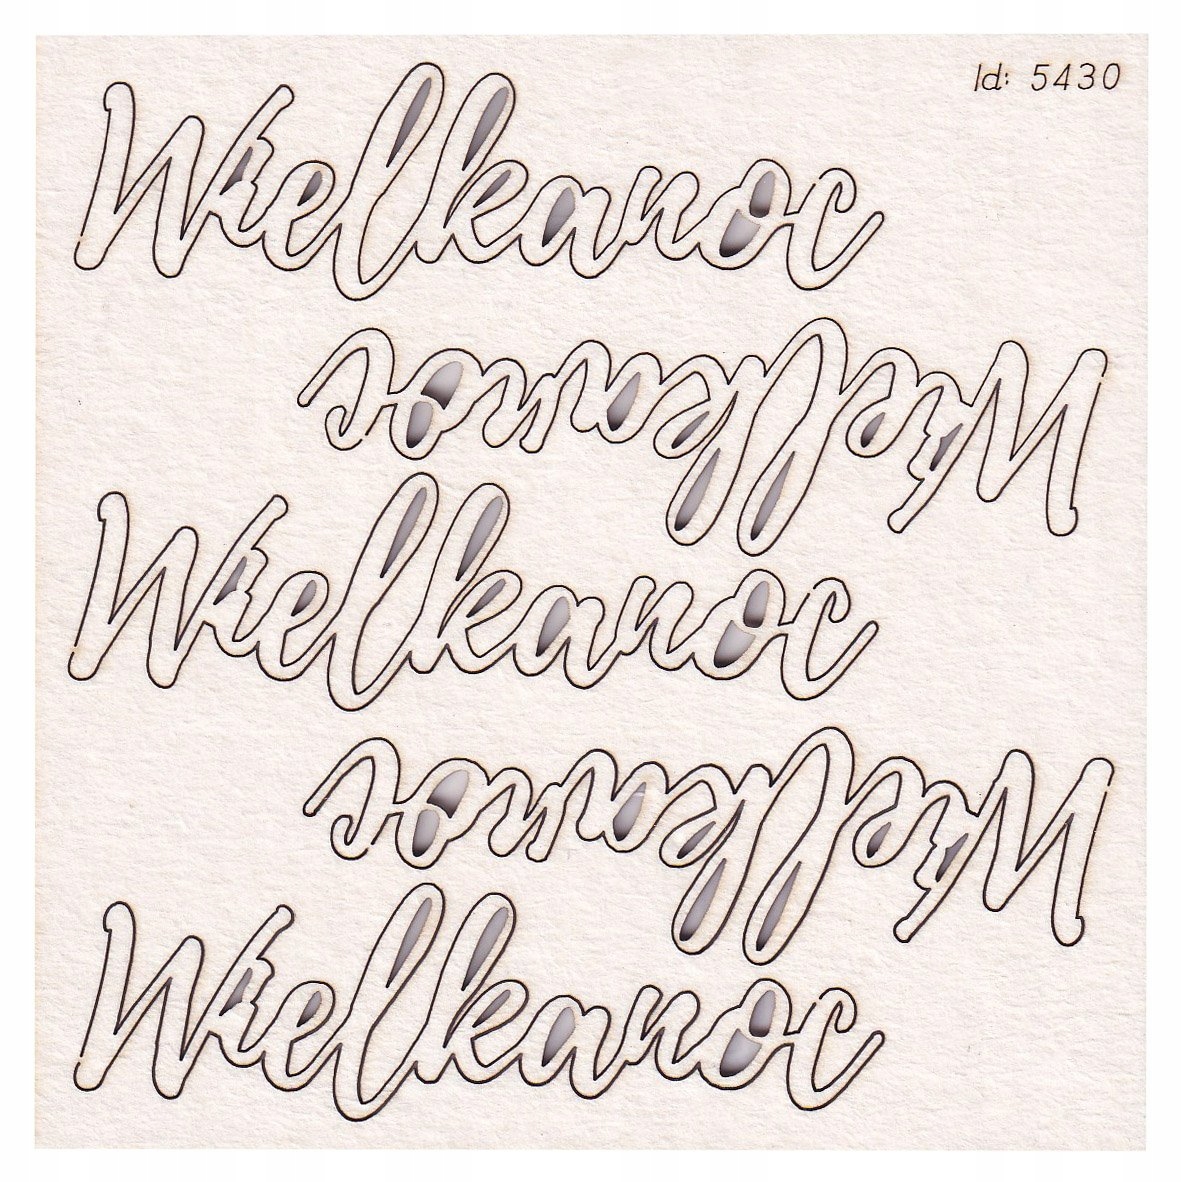 Id: 5430
Wielkanoc
Wielkanoc
Wielkanoc
Wielkanoc
Wielkanoc